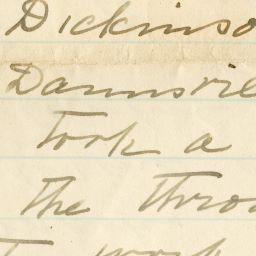 Dickinso
Dannsvil
took a
the thro
I work